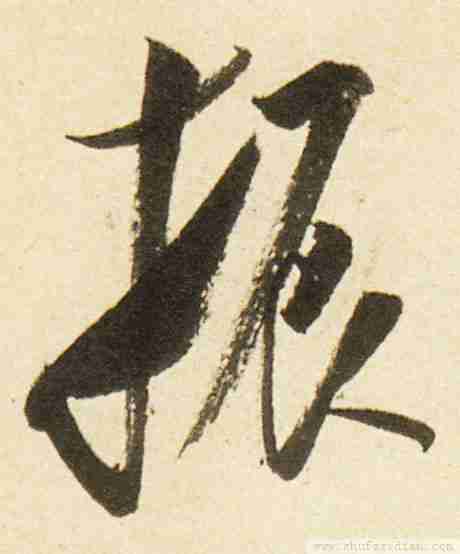 振
www.shufazidian.com